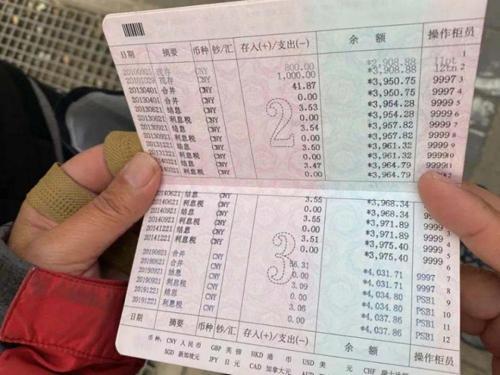 日期 摘要 币种 钞/汇 存入(+)/支出(-) 余额 操作柜员
CNY 800.00 *2,908.88 1
CNY 1,000.00 *3,908.88 2
20130401 合并 CNY 41.87 *3,950.75 9997 3
20130401 合并 CNY 0.00 *3,950.75 9997 4
20130621 结息 CNY 3.53 *3,954.28 9999 5
20130621 利息税 CNY 0.00 *3,954.28 9999 6
结息 CNY 3.54 *3,957.82 9999
利息税 CNY 0.00 *3,957.82 9999 8
结息 CNY 3.50 *3,961.32 9999 9
20131221 利息税 CNY 0.00 *3,961.32 9999 10
结息 CNY 3.47 *3,964.79 9999
利息税 CNY 0.00 *3,964.79 9999 12
2
20140621 结息 CNY 3.55 *3,968.34 9999 1
20140621 利息税 CNY 0.00 *3,968.34 9999 2
20140921 结息 CNY 3.55 *3,971.89 9999 3
20140921 利息税 CNY 0.00 *3,971.89 9999 4
20141221 结息 CNY 3.51 *3,975.40 9999 5
20141221 利息税 CNY 0.00 *3,975.40 9999 6
20190821 合并 CNY 56.31 *4,031.71 9997 7
合并 CNY 0.00 *4,031.71 9997 8
结息 CNY 3.09 *4,034.80 PSB1 9
利息税 CNY 0.00 *4,034.80 PSB1 10
20191221 结息 CNY 3.06 *4,037.86 PSB1 11
20191221 利息税 CNY 0.00 *4,037.86 PSB1 12
3
日期 摘要 币种 钞/汇 存入(+)/支出(-) 余额 操作柜员
币种: CNY 人民币 GBP 英镑 HKD 港币 USD 美元 CHF
SGD 新加坡元 JPY 日元 CAD 加拿大元